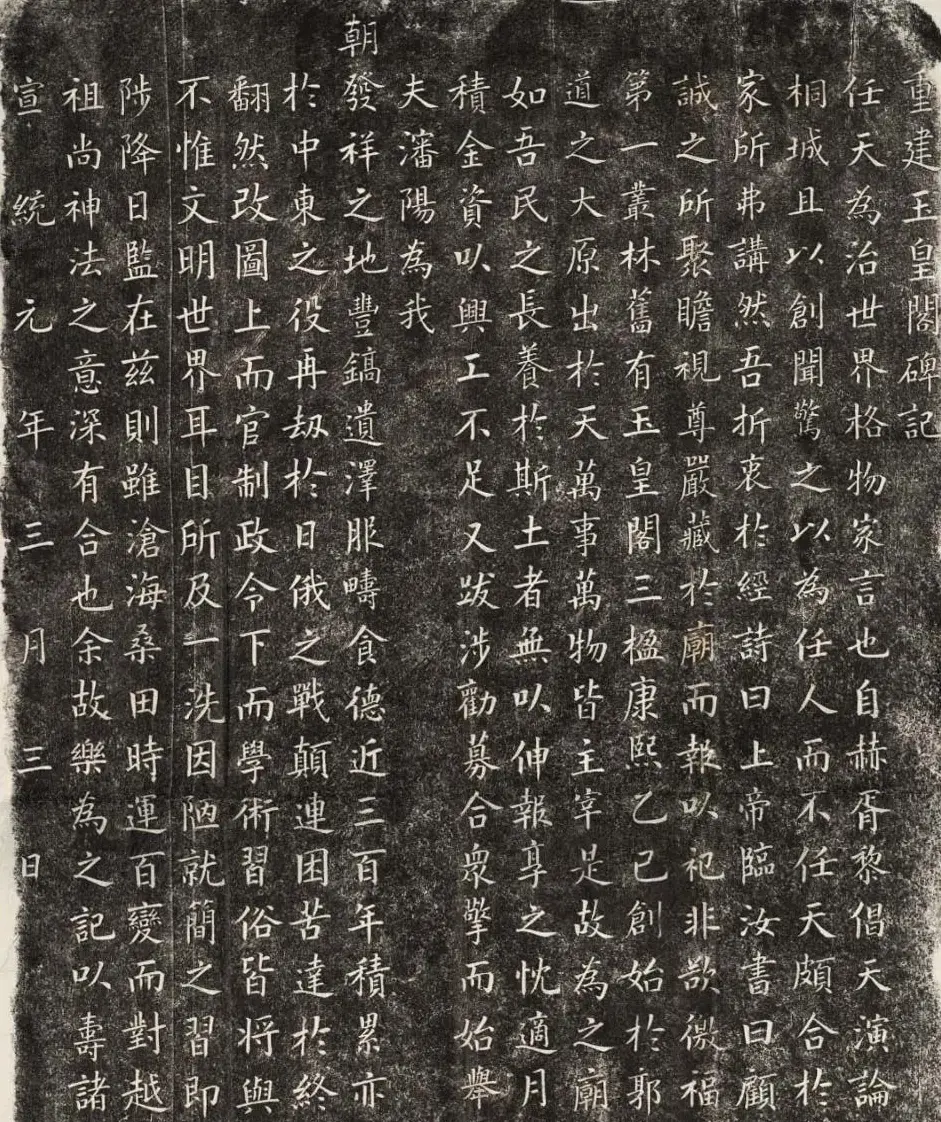 重建玉皇閣碑記
任天為治世界格物家言也自赫胥黎倡天演論
桐城且以創聞驚之以為任人而不任天頗合於
家所弗講然吾折衷於經詩曰上帝臨汝書曰顧
誠之所聚瞻視尊嚴藏於廟而報以祀非欲徼福
第一叢林舊有玉皇閣三楹康熙乙巳創始於郭
道之大原出於天萬事萬物皆主宰是故為之廟
如吾民之長養於斯土者無以伸報享之忱適月
積金資以興工不足又跋涉勸募合眾擎而始舉
夫瀋陽為我
朝發祥之地豐鎬遺澤服疇食德近三百年積累亦
於中東之役再劫於日俄之戰顛連困苦達於終
翻然改圖上而官制政令下而學術習俗皆將與
不惟文明世界耳目所及一洗因陋就簡之習即
陟降日監在茲則雖滄海桑田時運百變而對越
祖尚神法之意深有合也余故樂為之記以壽諸
宣統元年三月三日